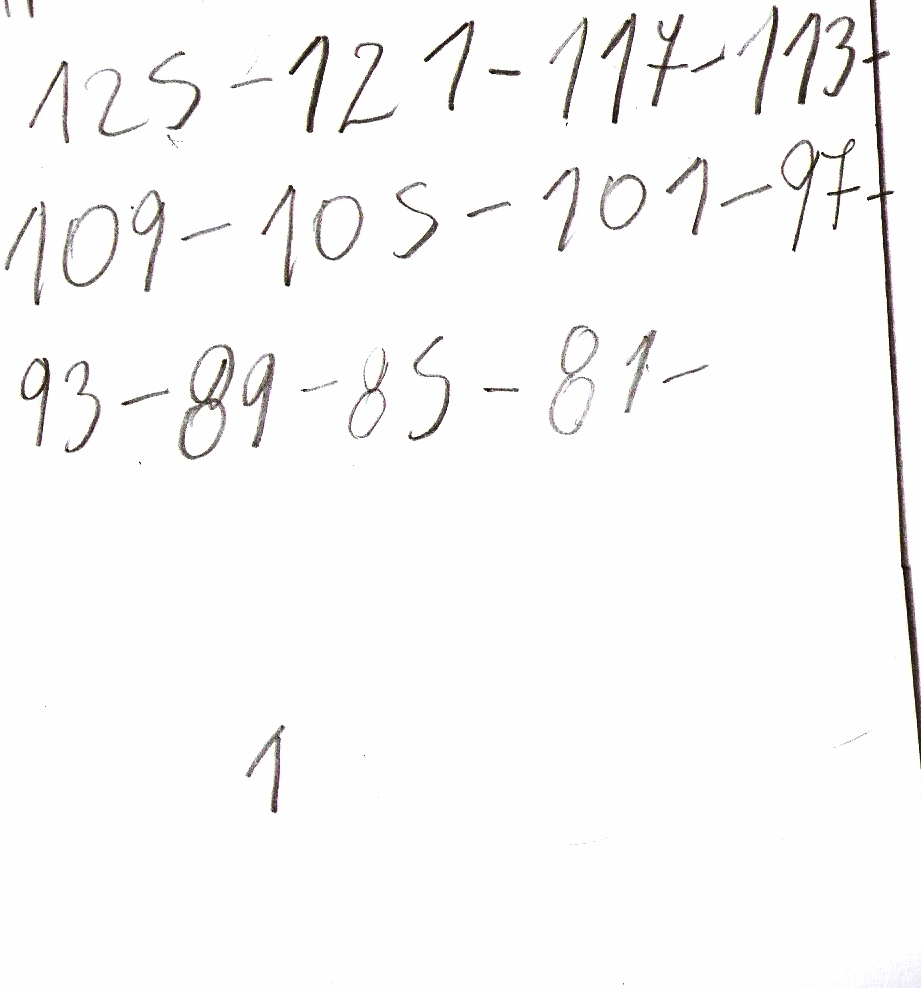 125-121-117-113-
109-105-101-97-
93-89-85-81-
1